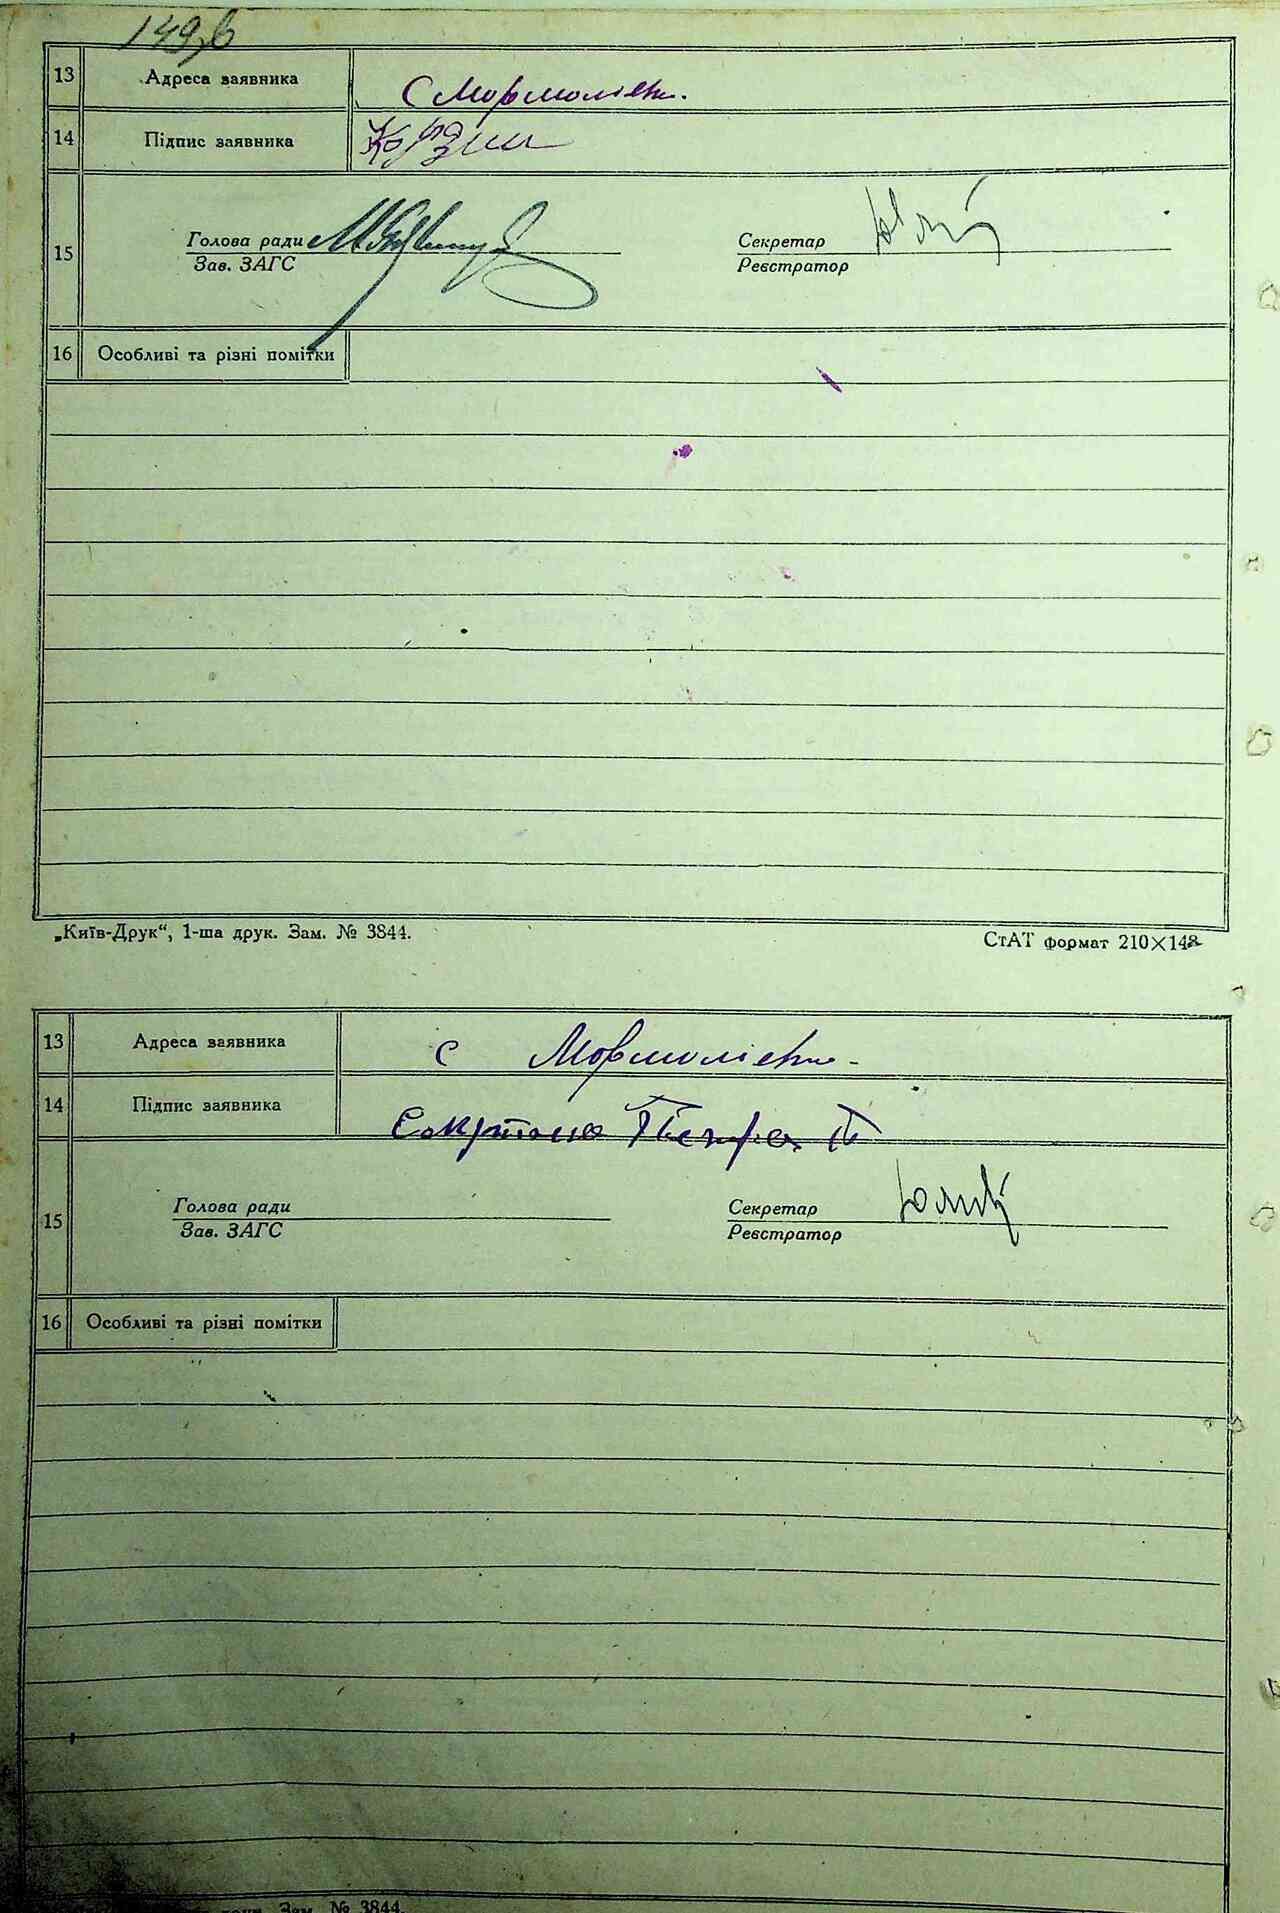 149,6
13 Адреса заявника с Мормоліівка.
14 Підпис заявника
15 Голова ради Секретар
Зав. ЗАГС Реєстратор
16 Особливі та різні помітки
„Київ-Друк“, 1-ша друк. Зам. № 3844. СтАТ формат 210×148
13 Адреса заявника с
14 Підпис заявника
15 Голова ради Секретар
Зав. ЗАГС Реєстратор
16 Особливі та різні помітки
друк. Зам. № 3844.